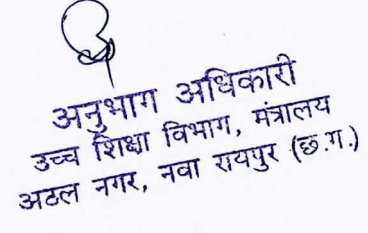 अनुभाग अधिकारी
उच्च शिक्षा विभाग, मंत्रालय
अटल नगर, नवा रायपुर (छ.ग.)